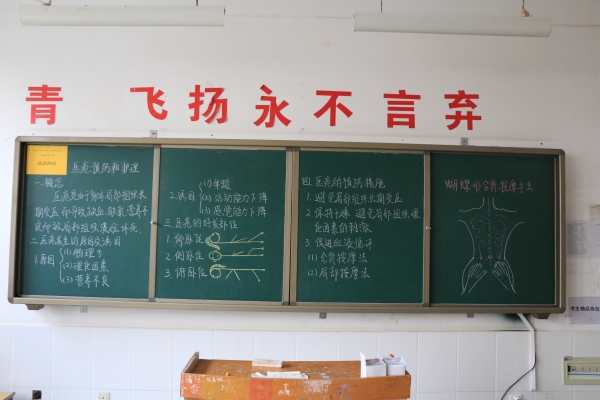 青 飞扬永不言弃
压疮预防和护理
一.概念
压疮是由于身体局部组织长
期受压,部
良
二.压疮发生的原因及诱因
1.原因
(1)物理力
(2)理化因素
(3)营养不良
2.诱因
(1)年龄
(2)活动能力下降
(3)感觉能力下降
三.压疮的好发部位
1.仰卧位
2.侧卧位
3.俯卧位
四.压疮的预防措施
1.避免局部组织长期受压
2.保持干燥 避免局部组织理
化因素的刺激
3.促进血液循环
(1)全背按摩法
(2)局部按摩法
蝴蝶形全背按摩手法